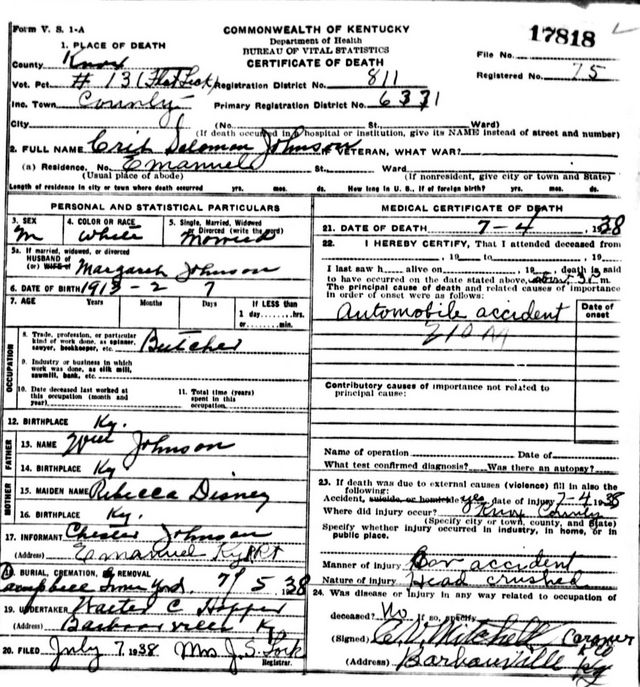 Form V. S. 1-A
COMMONWEALTH OF KENTUCKY
Department of Health
BUREAU OF VITAL STATISTICS
CERTIFICATE OF DEATH
17818
File No.
Registered No. 75
1. PLACE OF DEATH
County Knox
Vot. Pct. # 13 (Flat Lick) Registration District No. 811
Inc. Town County Primary Registration District No. 6371
City (No. St. Ward)
(If death occurred in a hospital or institution, give its NAME instead of street and number)
2. FULL NAME Solomon Johnson IF VETERAN, WHAT WAR?
(a) Residence, No. Emanuel St. Ward
(Usual place of abode) (If nonresident, give city or town and State)
Length of residence in city or town where death occurred yrs. mos. ds. How long in U. S., if of foreign birth? yrs. mos. ds.
PERSONAL AND STATISTICAL PARTICULARS
3. SEX M
4. COLOR OR RACE White
5. Single, Married, Widowed
Divorced (write the word)
Married
5a. If married, widowed, or divorced
HUSBAND of
(or) WIFE of Margaret Johnson
6. DATE OF BIRTH 1913 - 2 7
7. AGE Years Months Days If LESS than
1 day, hrs.
or min.
OCCUPATION
8. Trade, profession, or particular
kind of work done, as spinner,
sawyer, bookkeeper, etc. Butcher
9. Industry or business in which
work was done, as silk mill,
sawmill, bank, etc.
10. Date deceased last worked at
this occupation (month and
year)
11. Total time (years)
spent in this
occupation
12. BIRTHPLACE Ky.
FATHER
13. NAME Will Johnson
14. BIRTHPLACE Ky
MOTHER
15. MAIDEN NAME Rebecca Disney
16. BIRTHPLACE Ky.
17. INFORMANT Chester Johnson
(Address) Emanuel Ky
18. BURIAL, CREMATION, REMOVAL
Campbell 7/5 38
19. UNDERTAKER Walter C Hopper
(Address) Barbourville Ky
20. FILED July 7 1938 Mrs J. S.
Registrar.
MEDICAL CERTIFICATE OF DEATH
21. DATE OF DEATH 7-4, 1938
22. I HEREBY CERTIFY, That I attended deceased from
, 19 to , 19
I last saw h alive on , 19 , death is said
to have occurred on the date stated above, m.
The principal cause of death and related causes of importance
in order of onset were as follows:
Date of
onset
Automobile accident
210
Contributory causes of importance not related to
principal cause:
Name of operation Date of
What test confirmed diagnosis? Was there an autopsy?
23. If death was due to external causes (violence) fill in also the
following:
Accident, suicide, or homicide yes date of injury 7-4 1938
Where did injury occur? Knox County
(Specify city or town, county, and State)
Specify whether injury occurred in industry, in home, or in
public place.
Manner of injury Car accident
Nature of injury Head crushed
24. Was disease or injury in any way related to occupation of
deceased? No If so, specify
(Signed) Mitchell Coroner
(Address) Barbourville Ky